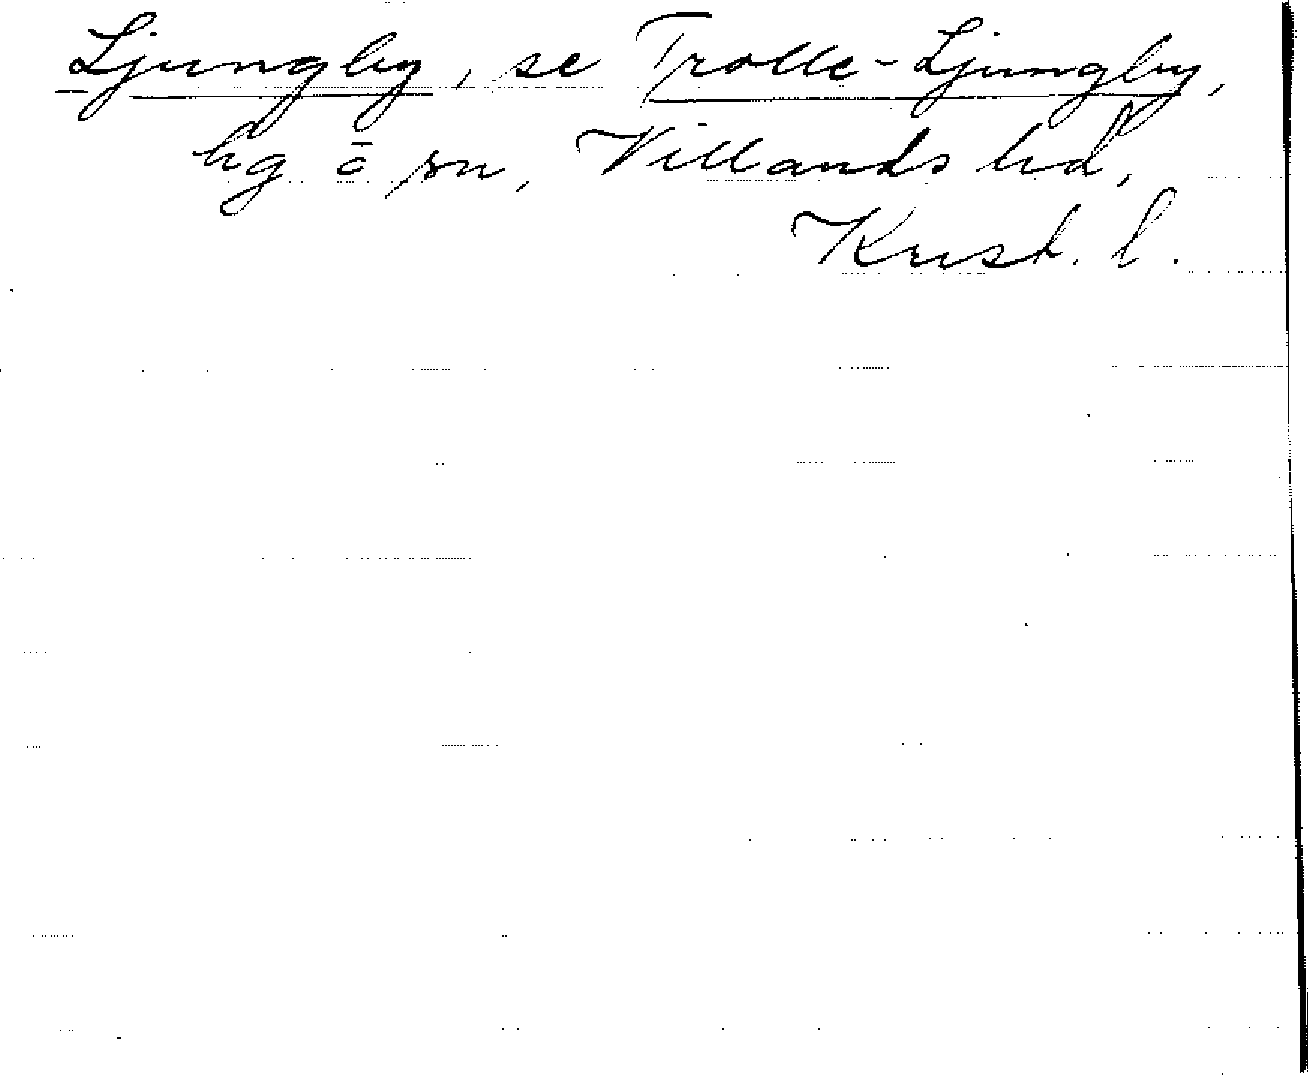 Ljungby, se Trolle-Ljungby,
hg o sn, Villands hd,
Krist. l.